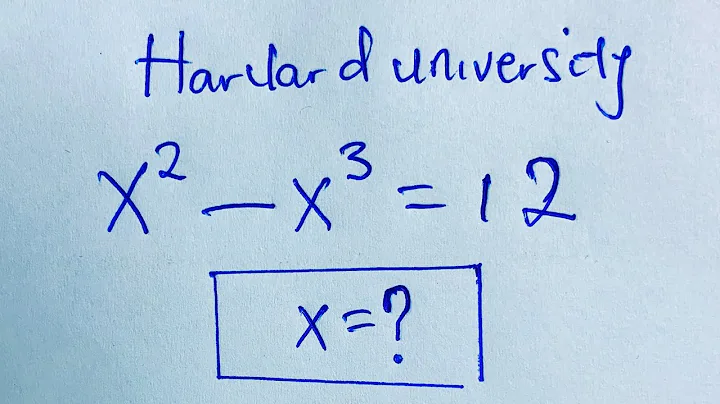 Harvard university
x² - x³ = 12
x = ?